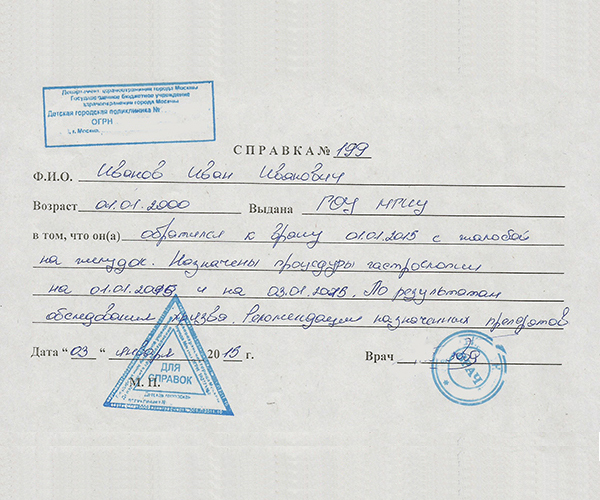 Департамент здравоохранения города Москвы
Государственное бюджетное учреждение
здравоохранения города Москвы
Детская городская поликлиника №
ОГРН
г. Москва
СПРАВКА № 199
Ф.И.О. Иванов Иван Иванович
Возраст 01.01.2000 Выдана ГОУ
в том, что он(а) обратился к врачу 01.01.2015 с жалобой
на желудок. Назначены процедуры гастроскопии
на 01.01.2015, и на 03.01.2015. По результатам
обследования язва. Рекомендации назначенных препаратов
Дата “ 03 “ января 2015 г. Врач
М. П.
ДЛЯ
СПРАВОК
ВРАЧ